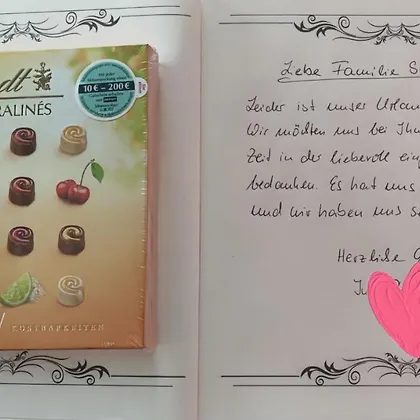 ndt
RALINÉS
10€ – 200€
KOSTBARKEITEN
Liebe Familie S
Leider ist unser Urlau
Wir möchten uns bei Ihn
Zeit in der liebevoll ein
bedanken. Es hat uns
und wir haben uns s
Herzliche G